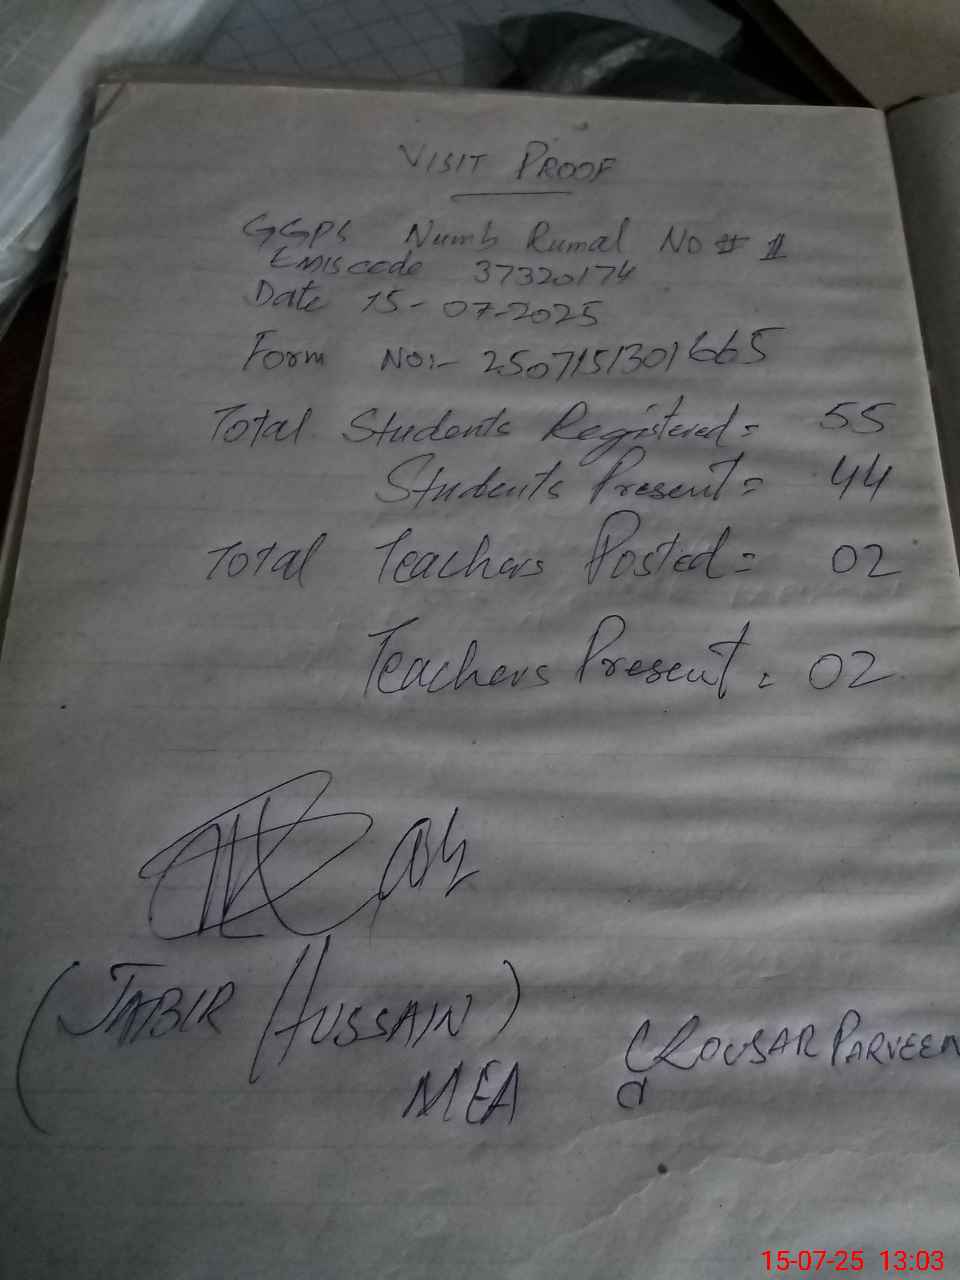 VISIT PROOF
GGPS Numb Rumal No # 1
Emis code 37320174
Date 15-07-2025
Form No:- 2507151301665
Total Students Registered = 55
Students Present = 44
Total Teachers Posted = 02
Teachers Present = 02
(JABIR HUSSAIN)
MEA
ROUSAR PARVEEN
15-07-25 13:03